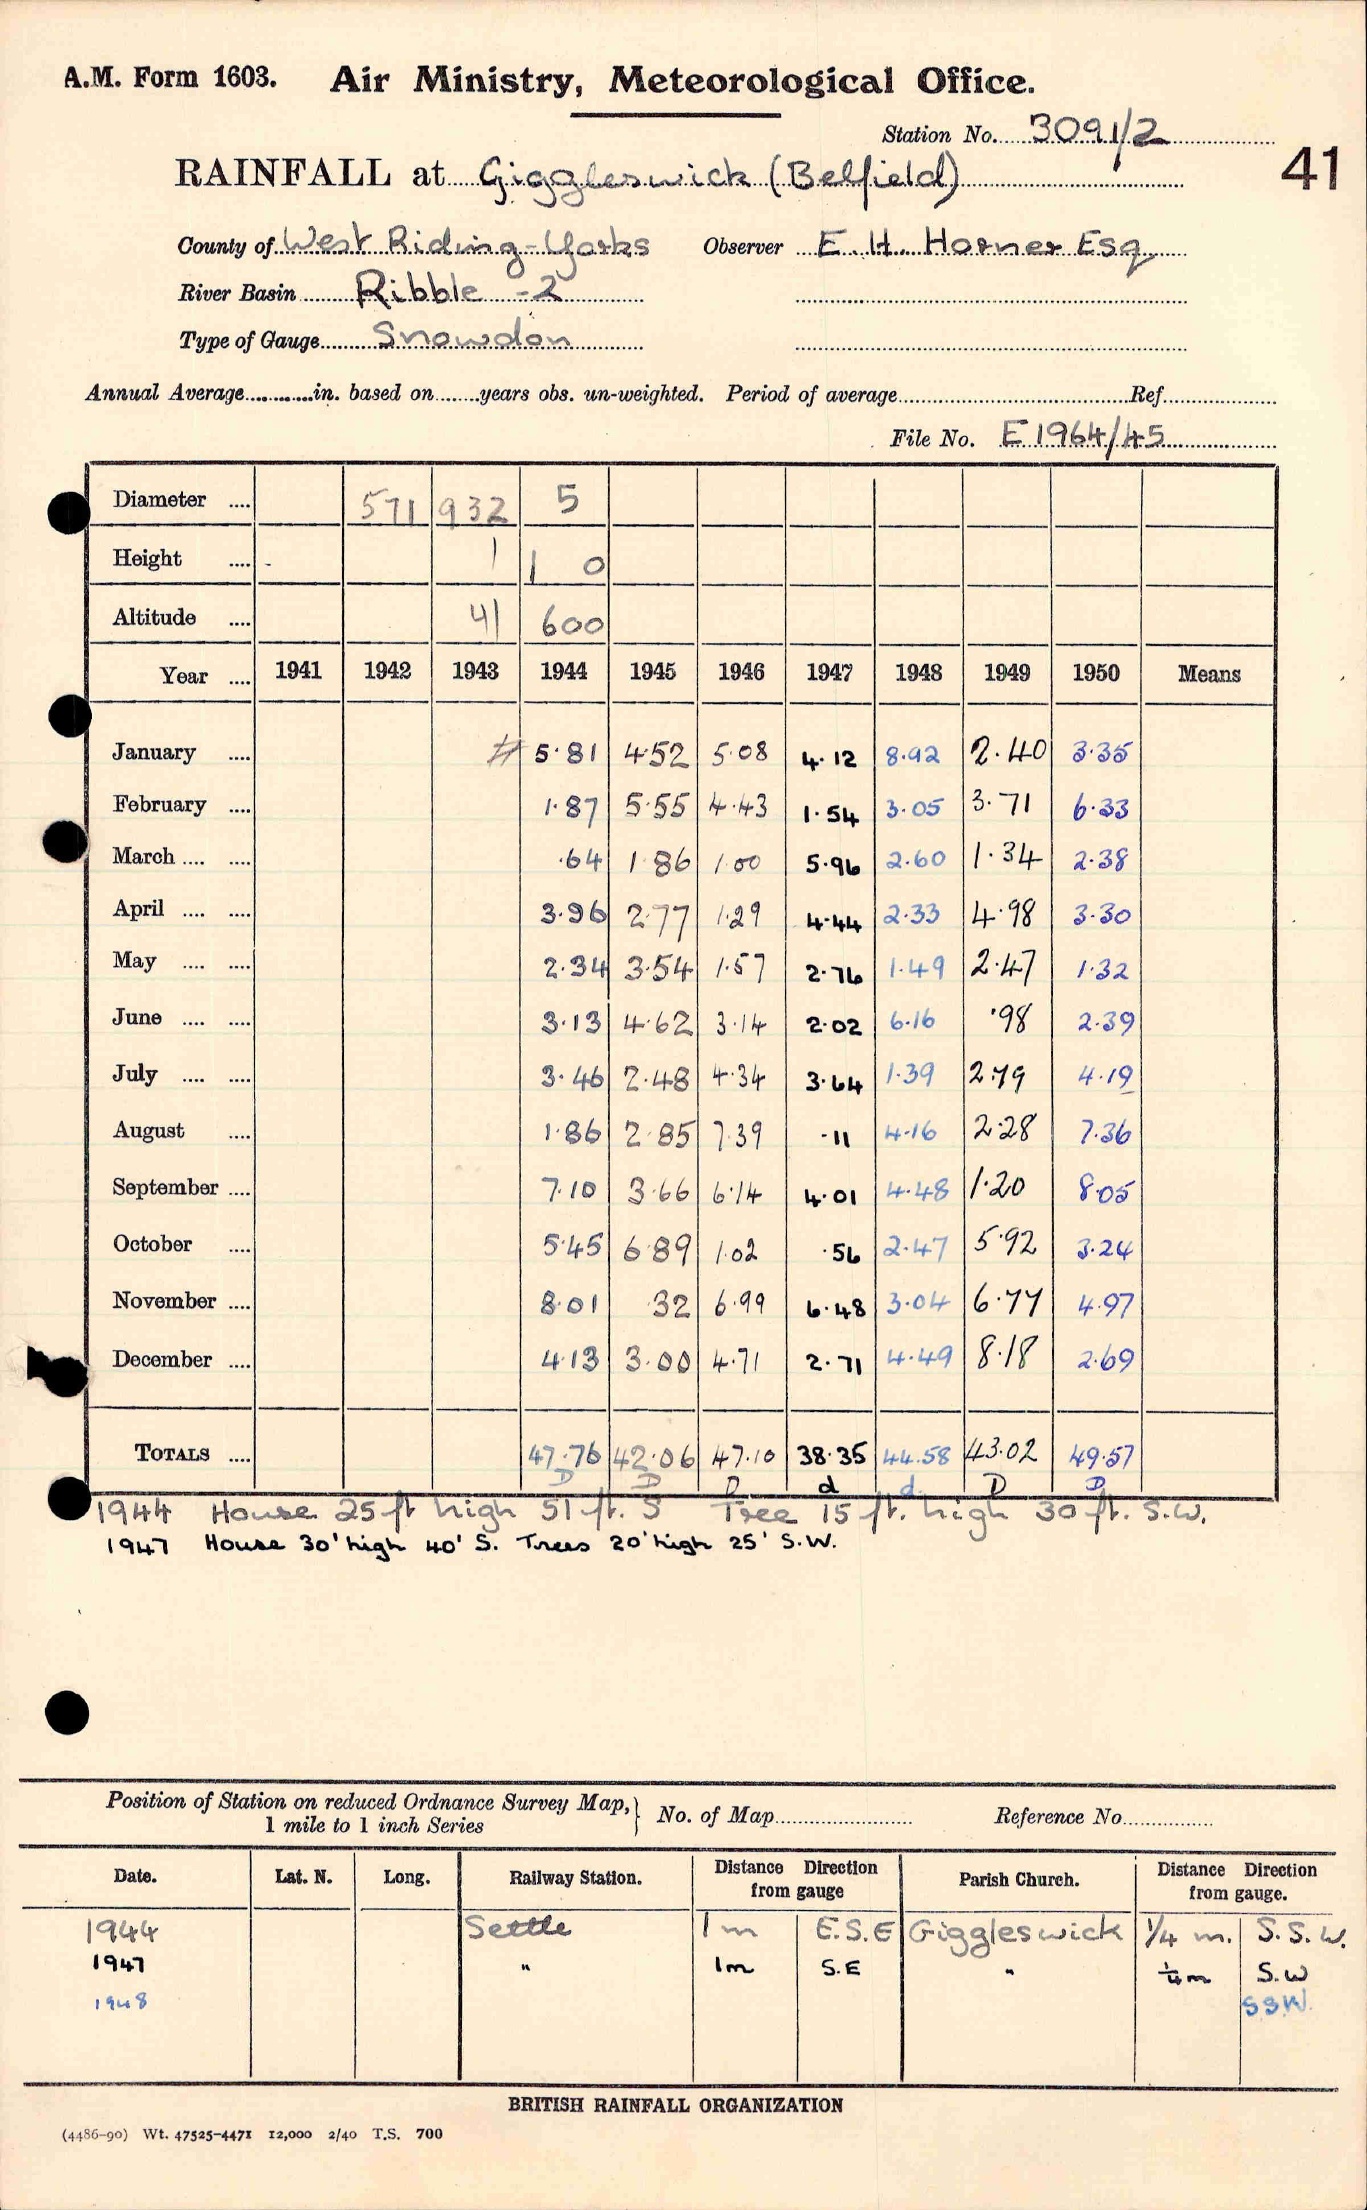 A.M. Form 1603. Air Ministry, Meteorological Office.
Station No. 3091/2
41
RAINFALL at Giggleswick (Belfield)
County of West Riding - Yorks Observer E. H. Horner Esq
River Basin Ribble - 2
Type of Gauge Snowdon
Annual Average............in. based on........years obs. un-weighted. Period of average............Ref............
File No. E 1964/45
Diameter .... 571 932 5
Height .... 1 1 0
Altitude .... 41 600
Year .... 1941 1942 1943 1944 1945 1946 1947 1948 1949 1950 Means
January .... # 5·81 4·52 5·08 4·12 8·92 2·40 3·35
February .... 1·87 5·55 4·43 1·54 3·05 3·71 6·33
March .... .... ·64 1·86 1·00 5·96 2·60 1·34 2·38
April .... .... 3·96 2·77 1·29 4·44 2·33 4·98 3·30
May .... .... 2·34 3·54 1·57 2·76 1·49 2·47 1·32
June .... .... 3·13 4·62 3·14 2·02 6·16 ·98 2·39
July .... .... 3·46 2·48 4·34 3·64 1·39 2·79 4·19
August .... 1·86 2·85 7·39 ·11 4·16 2·28 7·36
September .... 7·10 3·66 6·14 4·01 4·48 1·20 8·05
October .... 5·45 6·89 1·02 ·56 2·47 5·92 3·24
November .... 8·01 32 6·99 6·48 3·04 6·77 4·97
December .... 4·13 3·00 4·71 2·71 4·49 8·18 2·69
TOTALS .... 47·76 42·06 47·10 38·35 44.58 43·02 49·57
D D D d d D D
1944 House 25 ft high 51 ft. S Tree 15 ft. high 30 ft. S.W.
1947 House 30' high 40' S. Trees 20' high 25' S.W.
Position of Station on reduced Ordnance Survey Map, } No. of Map............ Reference No............
1 mile to 1 inch Series
Date. Lat. N. Long. Railway Station. Distance Direction from gauge Parish Church. Distance Direction from gauge.
1944 Settle 1 m E.S.E Giggleswick 1/4 m. S.S.W.
1947 " 1m S.E " 1/4m S.W
1948 S.S.W.
BRITISH RAINFALL ORGANIZATION
(4486-90) Wt. 47525-4471 12,000 2/40 T.S. 700